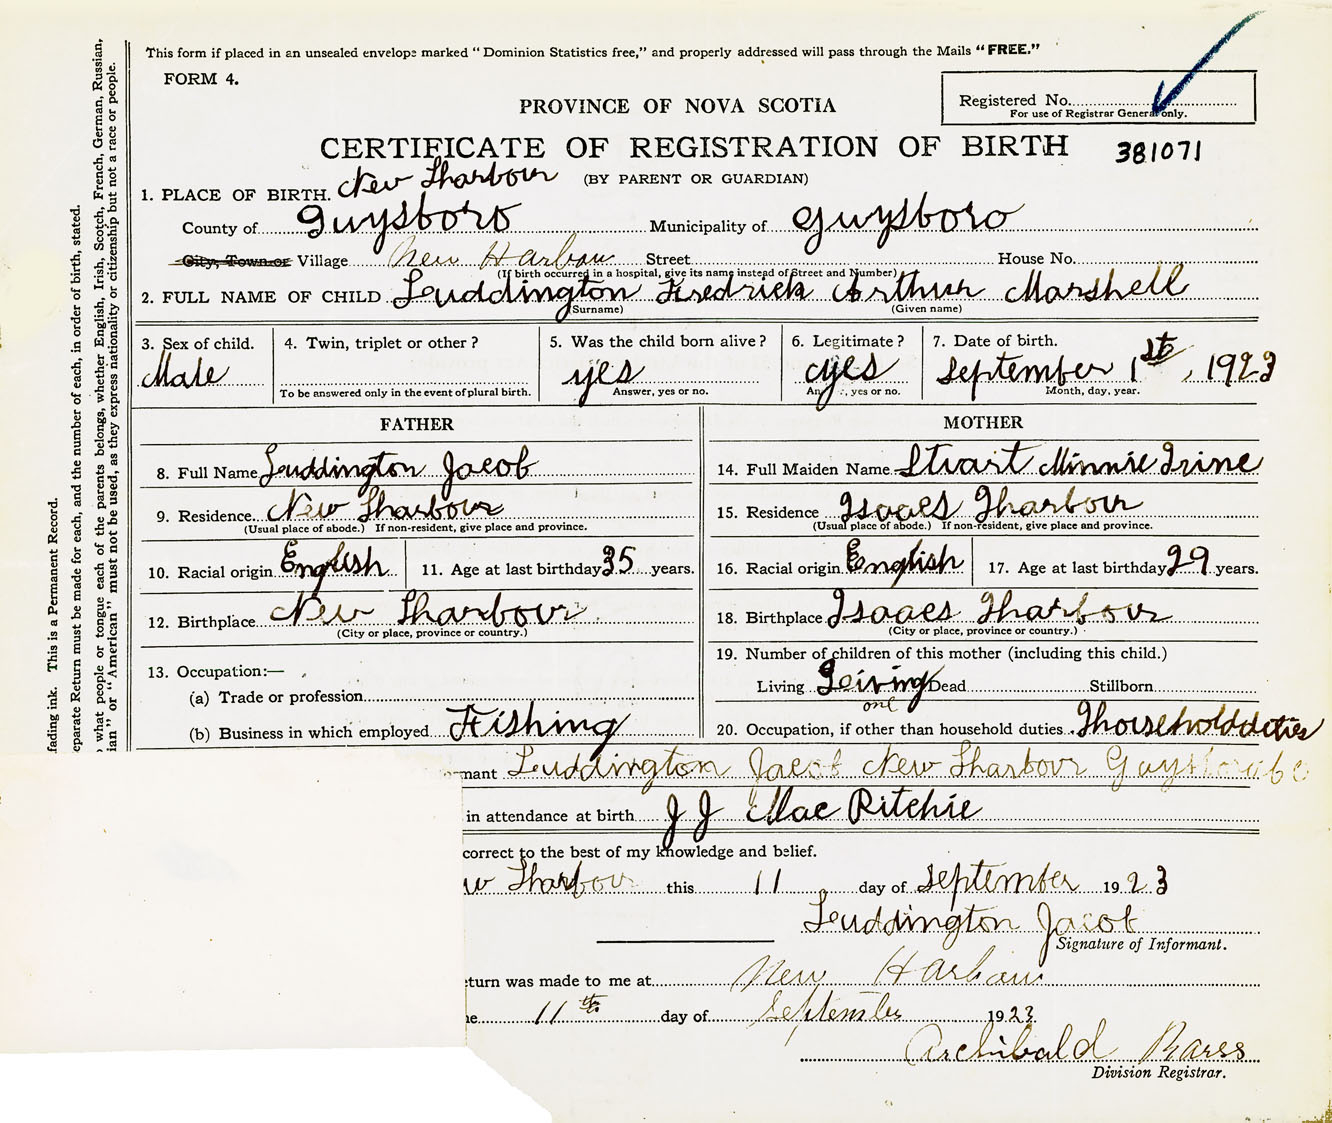 This form if placed in an unsealed envelope marked "Dominion Statistics free," and properly addressed will pass through the Mails "FREE."
FORM 4.
Registered No.
For use of Registrar General only.
PROVINCE OF NOVA SCOTIA
CERTIFICATE OF REGISTRATION OF BIRTH 381071
(BY PARENT OR GUARDIAN)
1. PLACE OF BIRTH. New Harbour
County of Guysboro Municipality of Guysboro
City, Town or Village New Harbour Street House No.
(If birth occurred in a hospital, give its name instead of Street and Number)
2. FULL NAME OF CHILD Luddington Fredrick Arthur Marshell
(Surname) (Given name)
3. Sex of child. 4. Twin, triplet or other? 5. Was the child born alive? 6. Legitimate? 7. Date of birth.
Male yes yes September 1st, 1923
To be answered only in the event of plural birth. Answer, yes or no. yes or no. Month, day, year.
FATHER MOTHER
8. Full Name Luddington Jacob 14. Full Maiden Name Stuart Minnie Irine
9. Residence New Harbour 15. Residence Isaacs Harbour
(Usual place of abode.) If non-resident, give place and province. (Usual place of abode.) If non-resident, give place and province.
10. Racial origin English 11. Age at last birthday 35 years. 16. Racial origin English 17. Age at last birthday 29 years.
12. Birthplace New Harbour 18. Birthplace Isaacs Harbour
(City or place, province or country.) (City or place, province or country.)
13. Occupation:— 19. Number of children of this mother (including this child.)
(a) Trade or profession Living Leiving Dead Stillborn
one
(b) Business in which employed Fishing 20. Occupation, if other than household duties Householdduties
mant Luddington Jacob New Harbour
in attendance at birth J J Mac Ritchie
correct to the best of my knowledge and belief.
w Harbour this 11 day of September 1923
Luddington Jacob
Signature of Informant.
turn was made to me at New Harbour
11th day of September 1923
Archibald Barss
Division Registrar.
fading ink. This is a Permanent Record.
eparate Return must be made for each, and the number of each, in order of birth, stated.
what people or tongue each of the parents belongs, whether English, Irish, Scotch, French, German, Russian,
ian" or "American" must not be used, as they express nationality or citizenship but not a race or people.